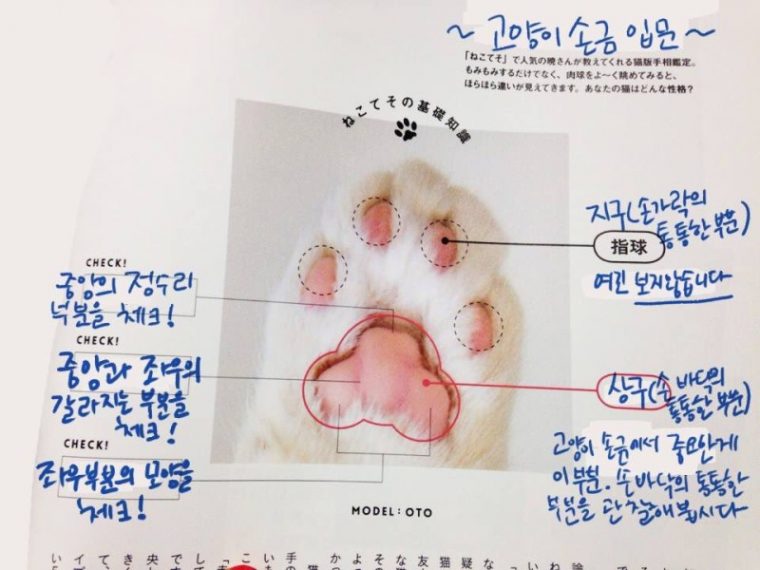 ~ 고양이 손금 입문 ~
「ねこてそ」で人気の暁さんが教えてくれる猫版手相鑑定。
もみもみするだけでなく、肉球をよ〜く眺めてみると、
ほらほら違いが見えてきます。あなたの猫はどんな性格?
ねこてその基礎知識
지구(손가락의
통통한 부분)
指球
여긴 보지않습니다
CHECK!
중앙의 정수리
부분을 체크!
CHECK!
중앙과 좌우의
갈라지는 부분을
체크!
CHECK!
좌우부분의 모양을
체크!
상구(손바닥의
통통한 부분)
고양이 손금에서 중요한게
이부분. 손바닥의 통통한
부분을 관찰해봅시다
MODEL : OTO